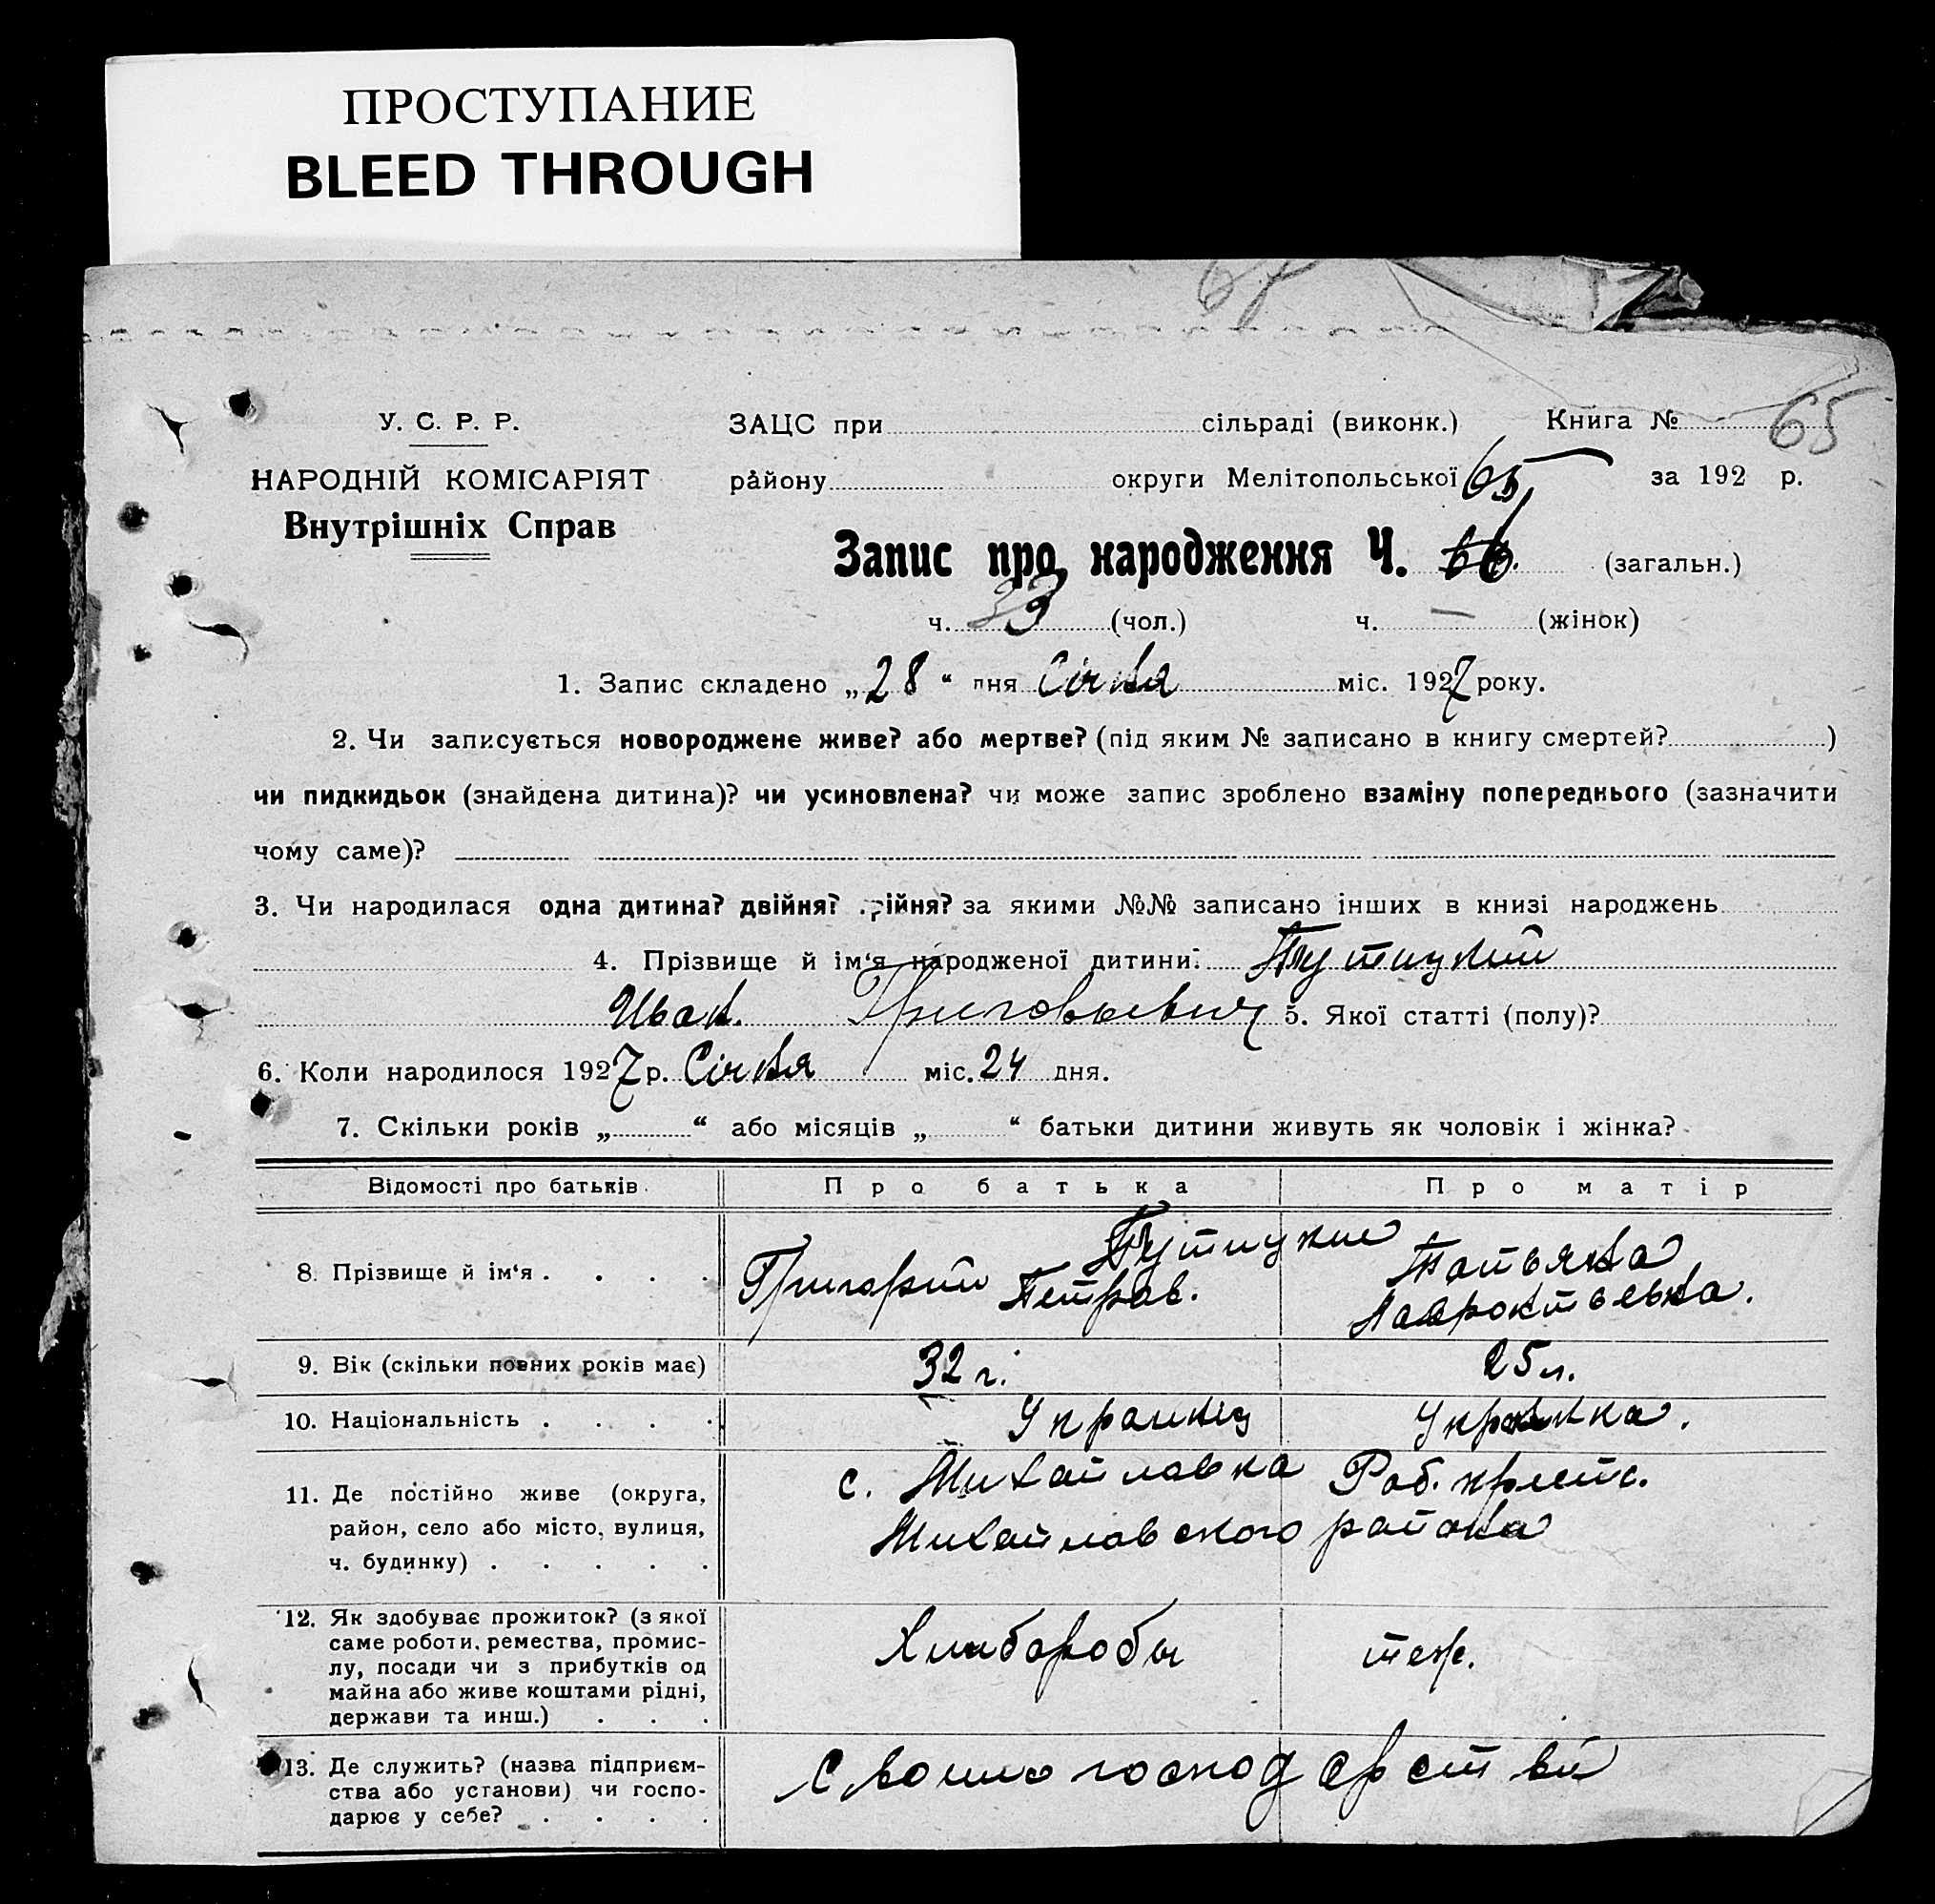 ПРОСТУПАНИЕ
BLEED THROUGH
67
65
У. С. Р. Р.
ЗАЦС при сільраді (виконк.) Книга №
НАРОДНІЙ КОМІСАРІЯТ
району округи Мелітопольської 65 за 192 р.
Внутрішніх Справ
Запис про народження Ч. 66. (загальн.)
ч. 33 (чол.) ч. — (жінок)
1. Запис складено „28“ дня Січня міс. 1927 року.
2. Чи записується новороджене живе? або мертве? (під яким № записано в книгу смертей? )
чи пидкидьок (знайдена дитина)? чи усиновлена? чи може запис зроблено взаміну попереднього (зазначити
чому саме)?
3. Чи народилася одна дитина? двійня? трійня? за якими №№ записано інших в книзі народжень
4. Прізвище й ім‘я народженої дитини:
Иван. Григорьевич 5. Якої статті (полу)?
6. Коли народилося 1927 р. Січня міс. 24 дня.
7. Скільки років „ “ або місяців „ “ батьки дитини живуть як чоловік і жінка?
Відомості про батьків. Про батька Про матір
8. Прізвище й ім‘я . . . .
Григорий Петров.
Татьяна
Лаврентьевна.
9. Вік (скільки повних років має) 32 г. 25 л.
10. Національність . . . . Украинец Украинка.
11. Де постійно живе (округа,
район, село або місто, вулиця,
ч. будинку) . . . . .
с. Михайловка Роб. крест.
Михайловского района
12. Як здобуває прожиток? (з якої
саме роботи, ремества, промис-
лу, посади чи з прибутків од
майна або живе коштами рідні,
держави та инш.) . . .
Хлибороби теж.
13. Де служить? (назва підприєм-
ства або установи) чи госпо-
дарює у себе? . . . .
господарстви